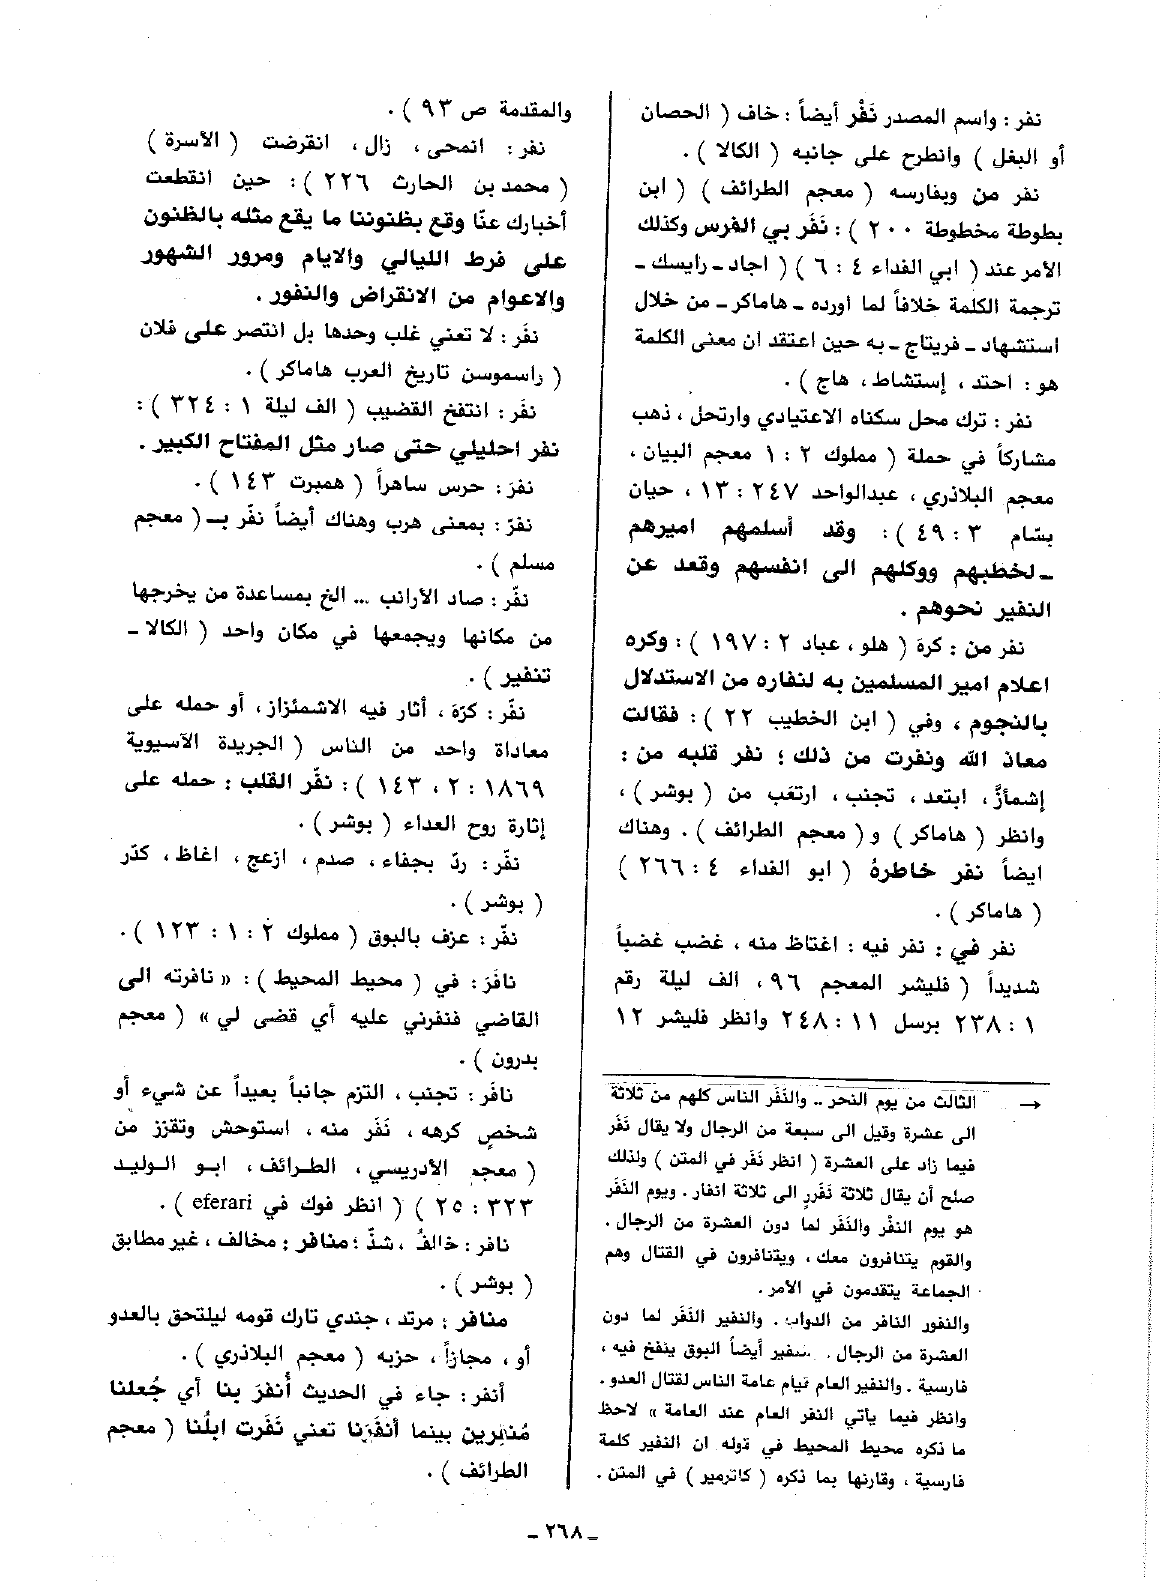 نفر : واسم المصدر نَفْر أيضاً : خاف ( الحصان
أو البغل ) وانطرح على جانبه ( الكالا ) .
نفر من وبفارسه ( معجم الطرائف ) ( ابن
بطوطة مخطوطة ٢٠٠ ) : نَفَر بي الفرس وكذلك
الأمر عند ( ابي الفداء ٤ : ٦ ) ( اجاد ــ رايسك ــ
ترجمة الكلمة خلافاً لما أورده ــ هاماكر ــ من خلال
استشهاد ــ فريتاج ــ به حين اعتقد ان معنى الكلمة
هو : احتد ، إستشاط ، هاج ) .
نفر : ترك محل سكناه الاعتيادي وارتحل ، ذهب
مشاركاً في حملة ( مملوك ٢ : ١ معجم البيان ،
معجم البلاذري ، عبدالواحد ٢٤٧ : ١٣ ، حيان
بسّام ٣ : ٤٩ ) : وقد أسلمهم اميرهم
ــ لخطبهم ووكلهم الى انفسهم وقعد عن
النفير نحوهم .
نفر من : كرهَ ( هلو ، عباد ٢ : ١٩٧ ) : وكره
اعلام امير المسلمين به لنفاره من الاستدلال
بالنجوم ، وفي ( ابن الخطيب ٢٢ ) : فقالت
معاذ الله ونفرت من ذلك ؛ نفر قلبه من :
إشمأزَّ ، ابتعد ، تجنب ، ارتعَب من ( بوشر ) ،
وانظر ( هاماكر ) و ( معجم الطرائف ) . وهناك
ايضاً نفر خاطرهُ ( ابو الفداء ٤ : ٢٦٦ )
( هاماكر ) .
نفر في : نفر فيه : اغتاظ منه ، غضب غضباً
شديداً ( فليشر المعجم ٩٦ ، الف ليلة رقم
١ : ٢٣٨ برسل ١١ : ٢٤٨ وانظر فليشر ١٢
← الثالث من يوم النحر .. والنَفَر الناس كلهم من ثلاثة
الى عشرة وقيل الى سبعة من الرجال ولا يقال نَفَر
فيما زاد على العشرة ( انظر نَفَر في المتن ) ولذلك
صلح أن يقال ثلاثة نَفَرٍ الى ثلاثة انفار . ويوم النَفَر
هو يوم النفْر والنَفَر لما دون العشرة من الرجال .
والقوم يتنافرون معك ، ويتنافرون في القتال وهم
الجماعة يتقدمون في الأمر .
والنفور النافر من الدواب . والنفير النَفَر لما دون
العشرة من الرجال . أيضاً البوق ينفخ فيه ،
فارسية . والنفير العام قيام عامة الناس لقتال العدو .
وانظر فيما يأتي النفر العام عند العامة » لاحظ
ما ذكره محيط المحيط في قوله ان النفير كلمة
فارسية ، وقارنها بما ذكره ( كاترمير ) في المتن .
والمقدمة ص ٩٣ ) .
نفر : انمحى ، زال ، انقرضت ( الأسرة )
( محمد بن الحارث ٢٢٦ ) : حين انقطعت
أخبارك عنّا وقع بظنوننا ما يقع مثله بالظنون
على فرط الليالي والايام ومرور الشهور
والاعوام من الانقراض والنفور .
نفَر : لا تعني غلب وحدها بل انتصر على فلان
( راسموسن تاريخ العرب هاماكر ) .
نفَر : انتفخ القضيب ( الف ليلة ١ : ٣٢٤ ) :
نفر احليلي حتى صار مثل المفتاح الكبير .
نفرَ : حرس ساهراً ( همبرت ١٤٣ ) .
نفرَ : بمعنى هرب وهناك أيضاً نفّر بـ ( معجم
مسلم ) .
نفّر : صاد الأرانب ... الخ بمساعدة من يخرجها
من مكانها ويجمعها في مكان واحد ( الكالا ــ
تنفير ) .
نفّر : كرّهَ ، أثار فيه الاشمئزاز ، أو حمله على
معاداة واحد من الناس ( الجريدة الآسيوية
١٨٦٩ : ٢ ، ١٤٣ ) : نفّر القلب : حمله على
إثارة روح العداء ( بوشر ) .
نفّر : ردّ بجفاء ، صدم ، ازعج ، اغاظ ، كدّر
( بوشر ) .
نفّر : عزف بالبوق ( مملوك ٢ : ١ : ١٢٣ ) .
نافَرَ : في ( محيط المحيط ) : « نافرته الى
القاضي فنفرني عليه أي قضى لي » ( معجم
بدرون ) .
نافَر : تجنب ، التزم جانباً بعيداً عن شيء أو
شخصٍ كرهه ، نَفَر منه ، استوحش وتقزز من
( معجم الأدريسي ، الطرائف ، ابو الوليد
٣٢٣ : ٢٥ ) ( انظر فوك في eferari ) .
نافر : خالفُ ، شذّ ؛ منافر : مخالف ، غير مطابق
( بوشر ) .
منافر : مرتد ، جندي تارك قومه ليلتحق بالعدو
أو ، مجازاً ، حزبه ( معجم البلاذري ) .
أنفر : جاء في الحديث أُنفرَ بنا أي جُعلنا
مُنفِرين بينما أنفَرنا تعني نَفَرت ابلُنا ( معجم
الطرائف ) .
ــ ٢٦٨ ــ